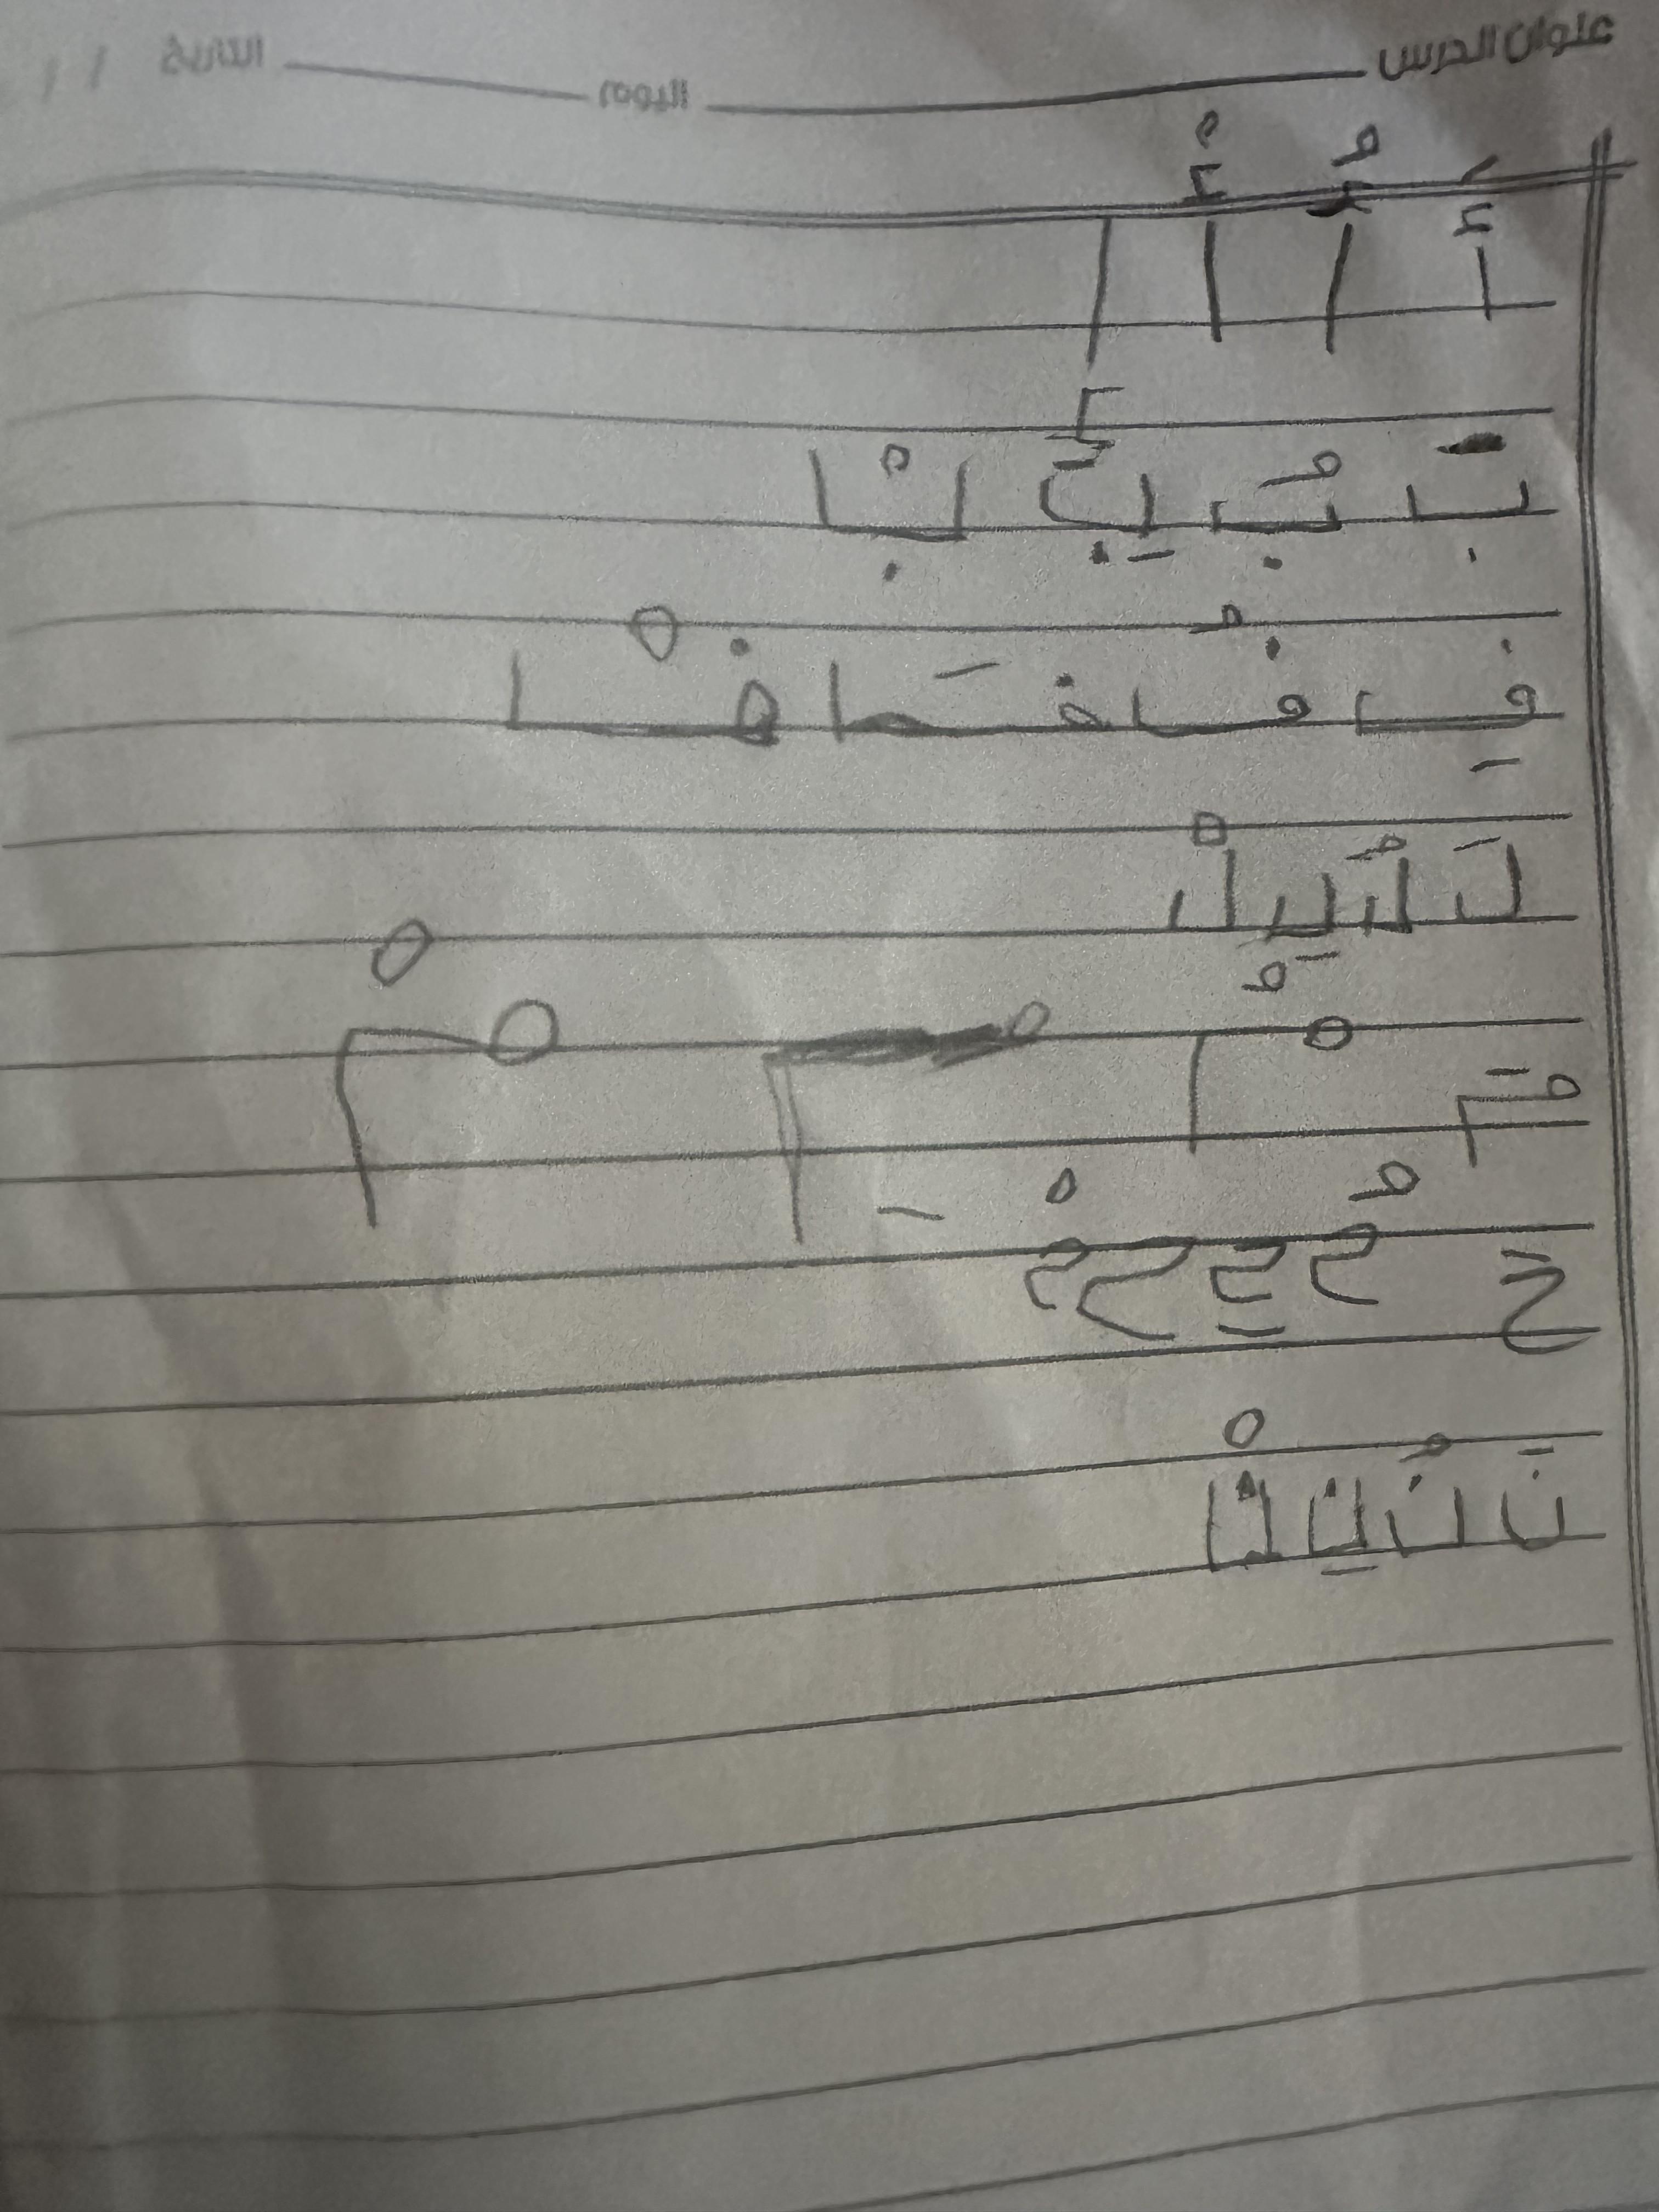 عنوان الدرس اليوم التاريخ / /
أَ أُ أْ إ
بَ بُ بِ بْ
فِ فُ فَ فْ
لَ لُ لِ لْ
مَ مُ مِ مْ
حَ حُ حِ حْ
نَ نُ نِ نْ